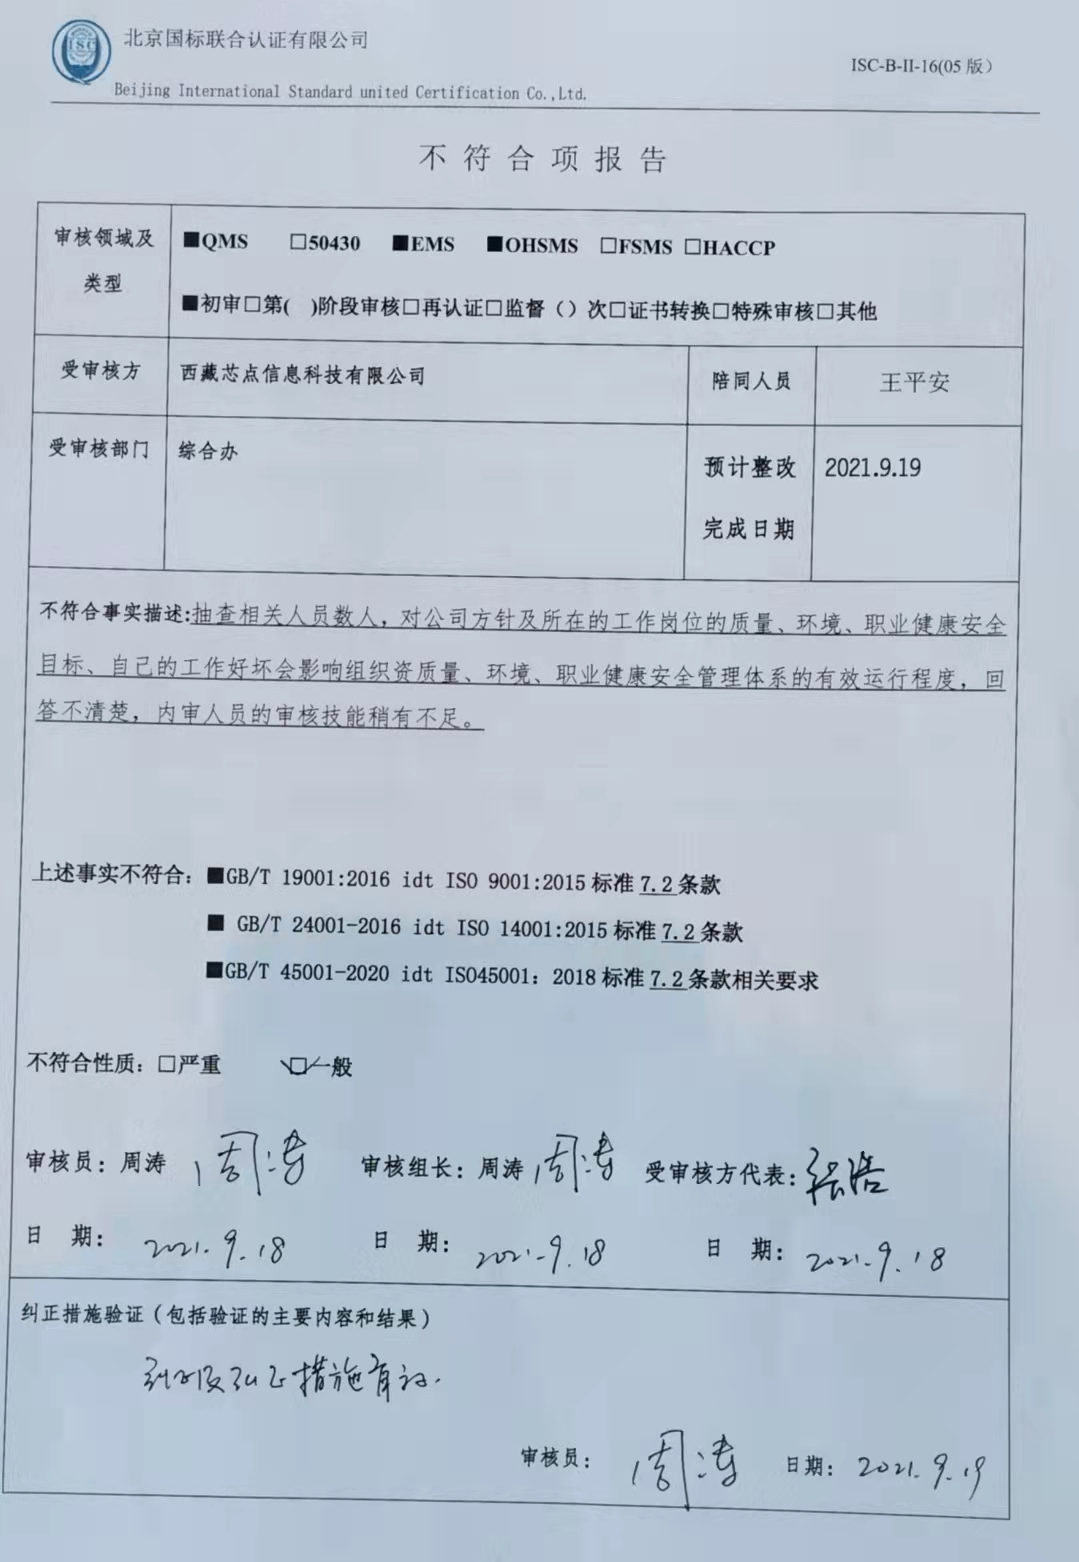 ISC
北京国标联合认证有限公司
Beijing International Standard united Certification Co.,Ltd.
ISC-B-II-16(05 版)
不符合项报告
审核领域及
类型
■QMS □50430 ■EMS ■OHSMS □FSMS □HACCP
■初审□第( )阶段审核□再认证□监督（）次□证书转换□特殊审核□其他
受审核方
西藏芯点信息科技有限公司
陪同人员
王平安
受审核部门
综合办
预计整改
完成日期
2021.9.19
不符合事实描述:抽查相关人员数人，对公司方针及所在的工作岗位的质量、环境、职业健康安全
目标、自己的工作好坏会影响组织资质量、环境、职业健康安全管理体系的有效运行程度，回
答不清楚，内审人员的审核技能稍有不足。
上述事实不符合：■GB/T 19001:2016 idt ISO 9001:2015 标准 7.2 条款
■ GB/T 24001-2016 idt ISO 14001:2015 标准 7.2 条款
■GB/T 45001-2020 idt ISO45001：2018 标准 7.2 条款相关要求
不符合性质：□严重 □一般
审核员：周涛 周涛 审核组长：周涛 周涛 受审核方代表：张浩
日 期： 2021.9.18 日 期： 2021.9.18 日 期： 2021.9.18
纠正措施验证（包括验证的主要内容和结果）
纠正措施有效.
审核员： 周涛 日期： 2021.9.19